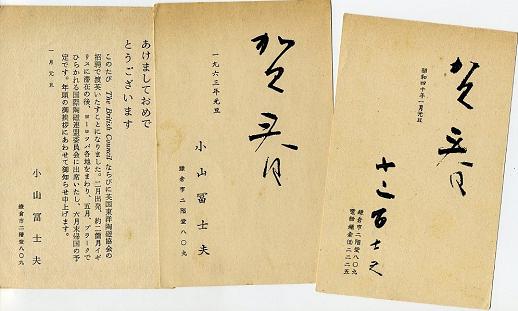 あけましておめで
とうございます
このたび The British Council ならびに英国東洋陶磁協会の
招聘で渡英いたすことになりました。二月出発、約二箇月イギ
リスに滞在の後、ヨーロッパ各地をまわり、五月、プラークで
ひらかれる国際陶磁連盟委員会に出席いたし、六月末帰国の予
定です。年頭の御挨拶にあわせて御知らせ申上げます。
一月元旦
小山冨士夫
鎌倉市二階堂八〇九
賀春
一九六三年元旦
小山冨士夫
鎌倉市二階堂八〇九
賀春
昭和四十年一月元旦
鎌倉市二階堂八〇九